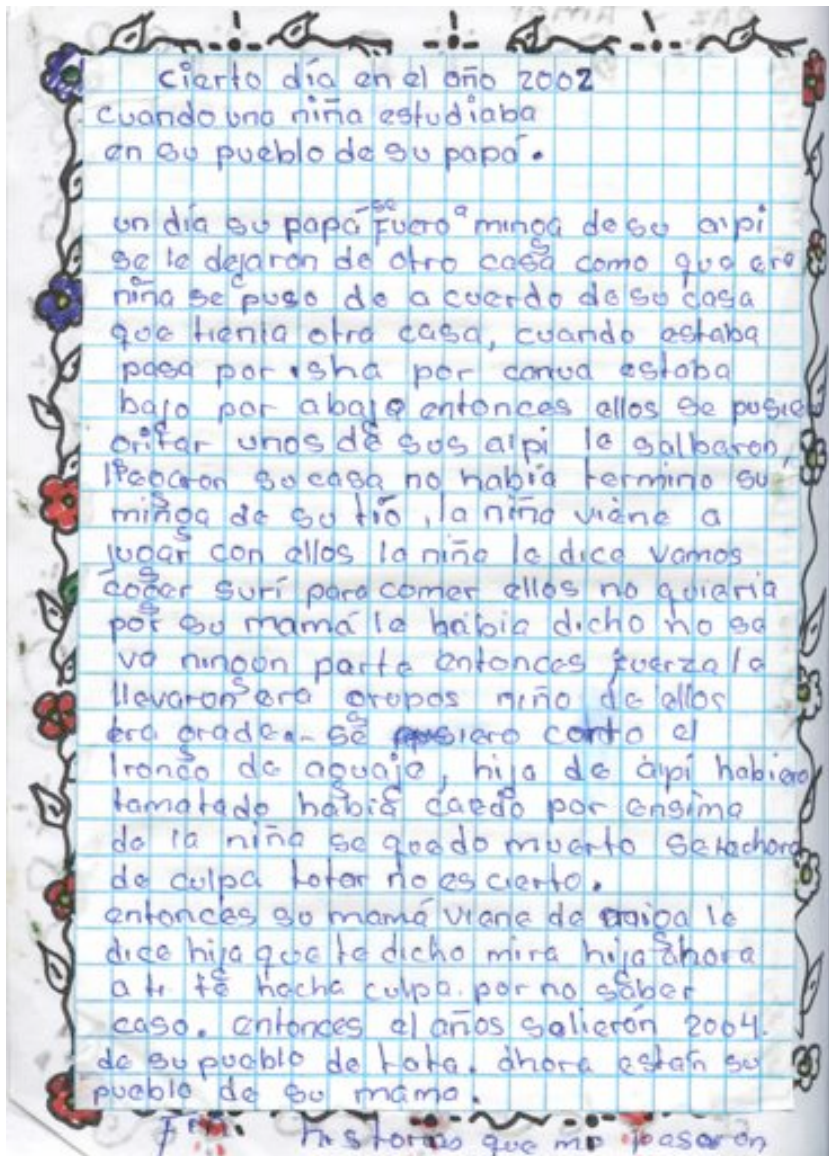 cierto día en el año 2002
cuando una niña estudiaba
en su pueblo de su papá.
un día su papá se fuero a minga de su aipi
se le dejaron de otro casa como que era
niña se puso de acuerdo de su casa
que tienia otra casa, cuando estaba
pasa por isha por canua estaba
bajo por abajo entonces ellos se pusie
gritar unos de sus aipi le salbaron,
llegaron su casa no había termino su
minga de su tío, la niña viene a
jugar con ellos la niña le dice vamos
coger surí para comer ellos no quieria
por su mamá le había dicho no se
va ningun parte entonces fuerza le
llevaron era grupos niño de ellos
era grade. se pusiero corto el
tronco de aguaje, hija de aipi habiero
tamatado había caedo por ensima
de la niña se quedo muerto
de culpa no es cierto.
entonces su mamá viene de le
dice hija que te dicho mira hija ahora
a ti te hecha culpa. por no saber
caso. entonces el años salierón 2004.
de su pueblo de tota. ahora están su
pueblo de su mama.
historias que me pasaron